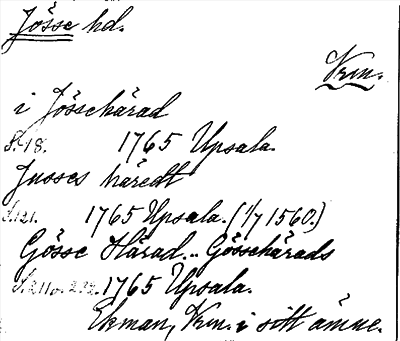 Jösse hd.
Vrm.
i Jösshärad
S. 18. 1765 Upsala.
Jusses häredt
S. 121. 1765 Upsala. (1/7 1560.)
Gösse Härad .. Gösshärads
1765 Upsala.
Ekman, Vrm. i sitt ämne.